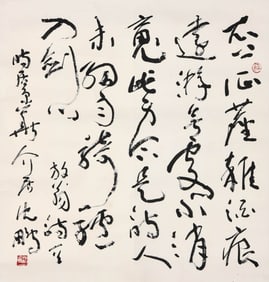 衣上征塵雜酒痕
遠游無處不消
魂此身合是詩人
未細雨騎驢
入劍門 放翁詩
介居沈鵬